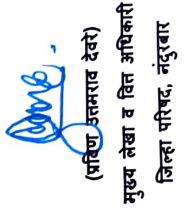 (प्रविण उत्तमराव देवरे)
मुख्य लेखा व वित्त अधिकारी
जिल्हा परिषद, नंदुरबार